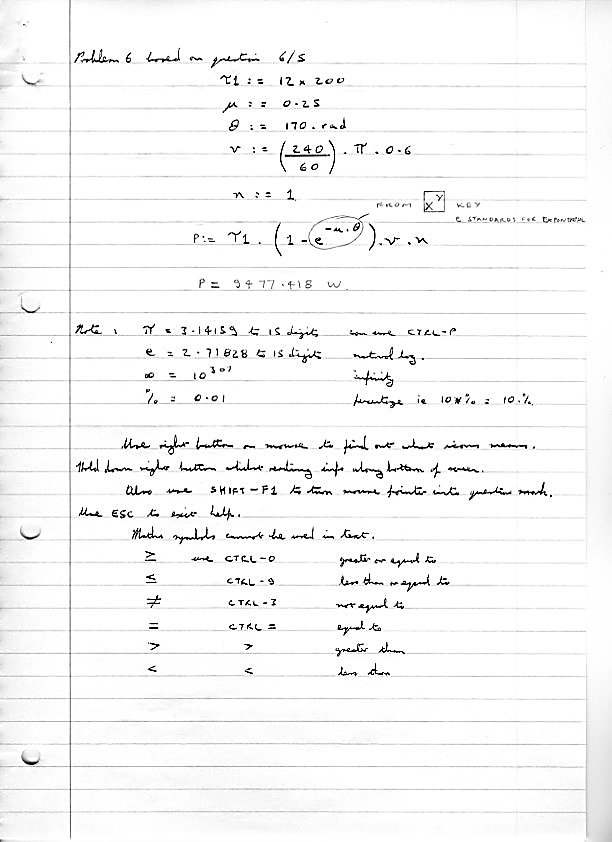 Problem 6 based on question 6/5
T1 := 12 x 200
μ := 0.25
θ := 170.rad
v := (240/60) . π . 0.6
n := 1
FROM x^y KEY
E STANDARDS FOR EXPONENTIAL
P := T1 . (1 - e^-μ.θ) . v . n
P = 9477.418 W
Note : π = 3.14159 to 15 digits can use CTRL-P
e = 2.71828 to 15 digits natural log.
∞ = 10^307 infinity
% = 0.01 percentage ie 10*% = 10.%
Use right button on mouse to find out what icons means.
Hold down right button whilst reading info along bottom of screen.
Also use SHIFT-F1 to turn mouse pointer into question mark.
Use ESC to exit help.
Maths symbols cannot be used in text.
≥ use CTRL-0 greater or equal to
≤ CTRL-9 less than or equal to
≠ CTRL-3 not equal to
= CTRL = equal to
> > greater than
< < less than